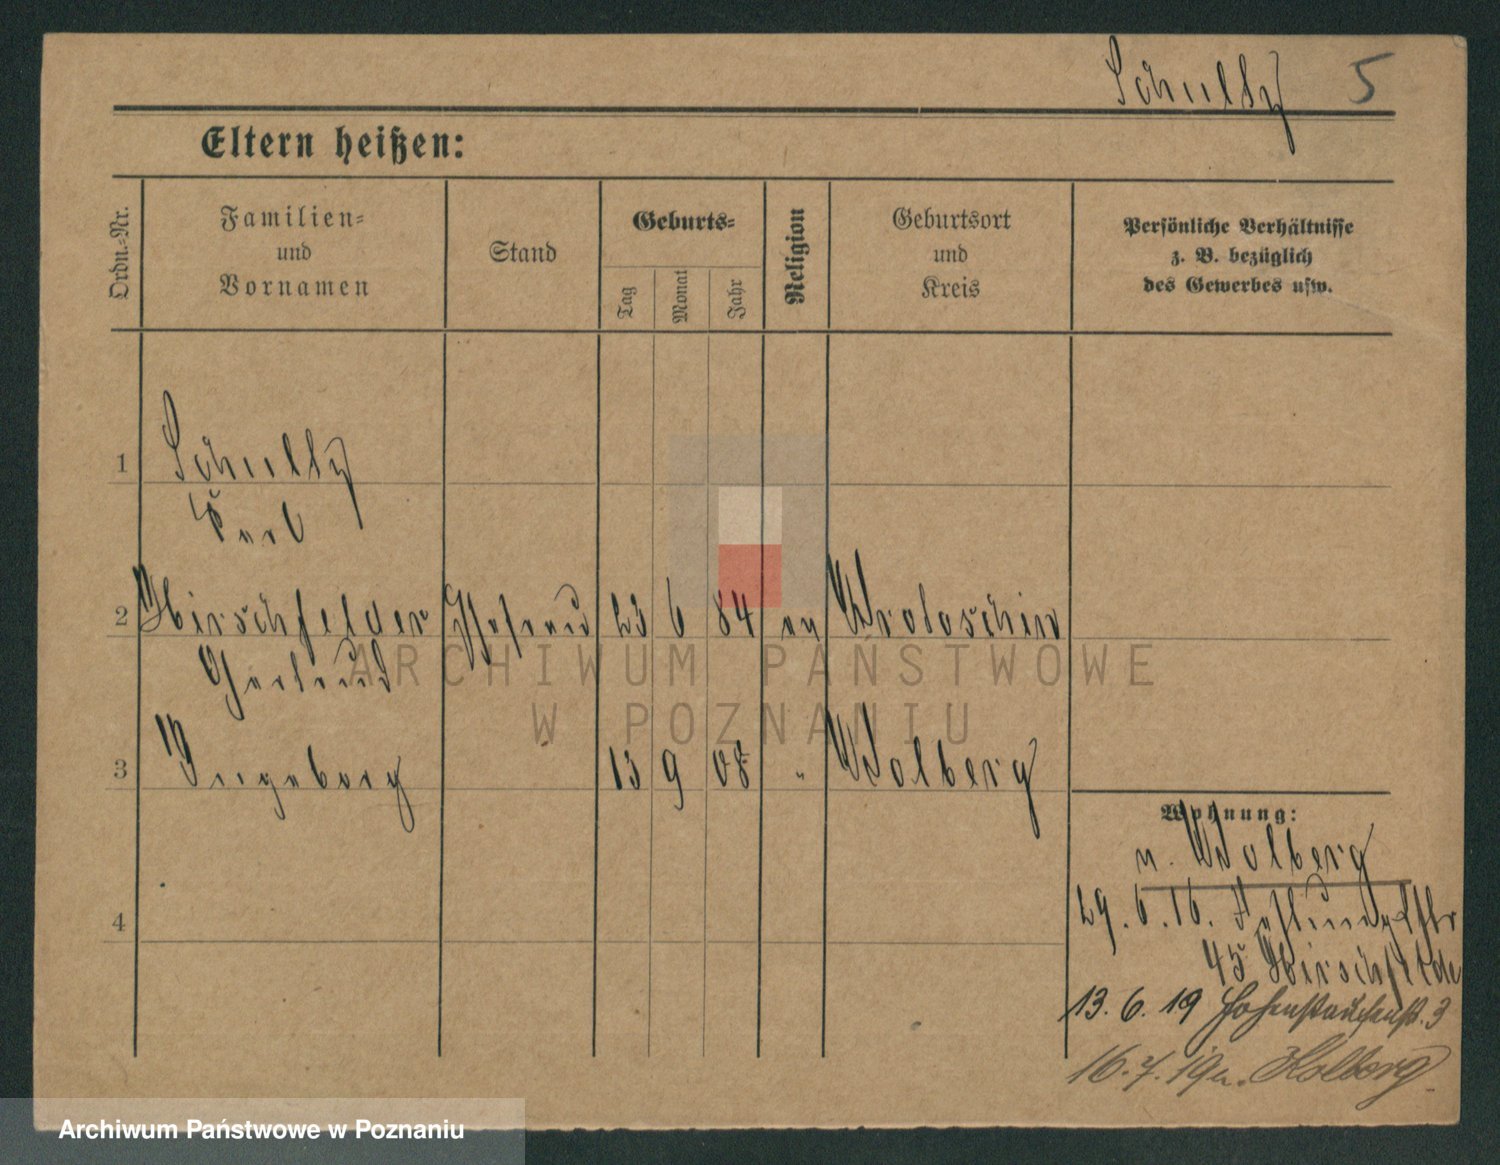 Schultz 5
Eltern heißen:
Ordn.=Nr.
Familien=
und
Vornamen
Stand
Geburts=
Tag
Monat
Jahr
Religion
Geburtsort
und
Kreis
Persönliche Verhältnisse
z. B. bezüglich
des Gewerbes usw.
1 Schultz
Karl
2 Hirschfelder Ehefrau 23 6 84 ev Krotoschin
Gertrud
3 Ingeborg 13 9 08 " Kolberg
4
Wohnung:
n. Kolberg
29. 6. 16. Festungsstr
45 Hirschfelde
13. 6. 19 Hohenstaufenst. 3
16. 7. 19 n. Kolberg
ARCHIWUM PAŃSTWOWE
W POZNANIU
Archiwum Państwowe w Poznaniu